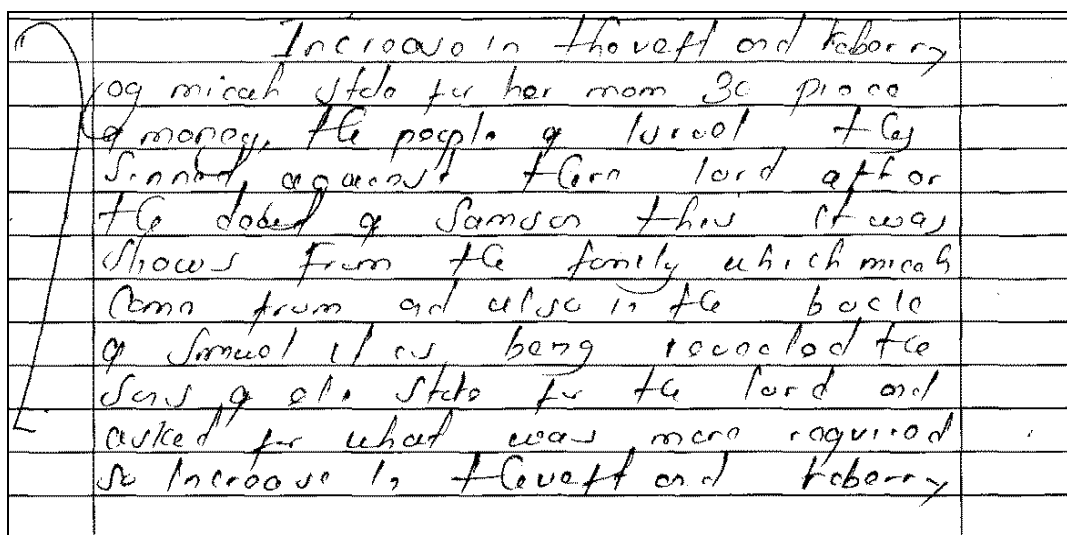 Increase in theveft and robberry
eg micah stole for her mom 30 piece
of money, the people of Isreal they
Sinned against their lord after
the death of Samson this it was
shows from the family which micah
Came from and also in the book
of Smuel it is being revealed the
sons of eli stole for the lord and
asked for what was more required
so increase in theveft and robberry